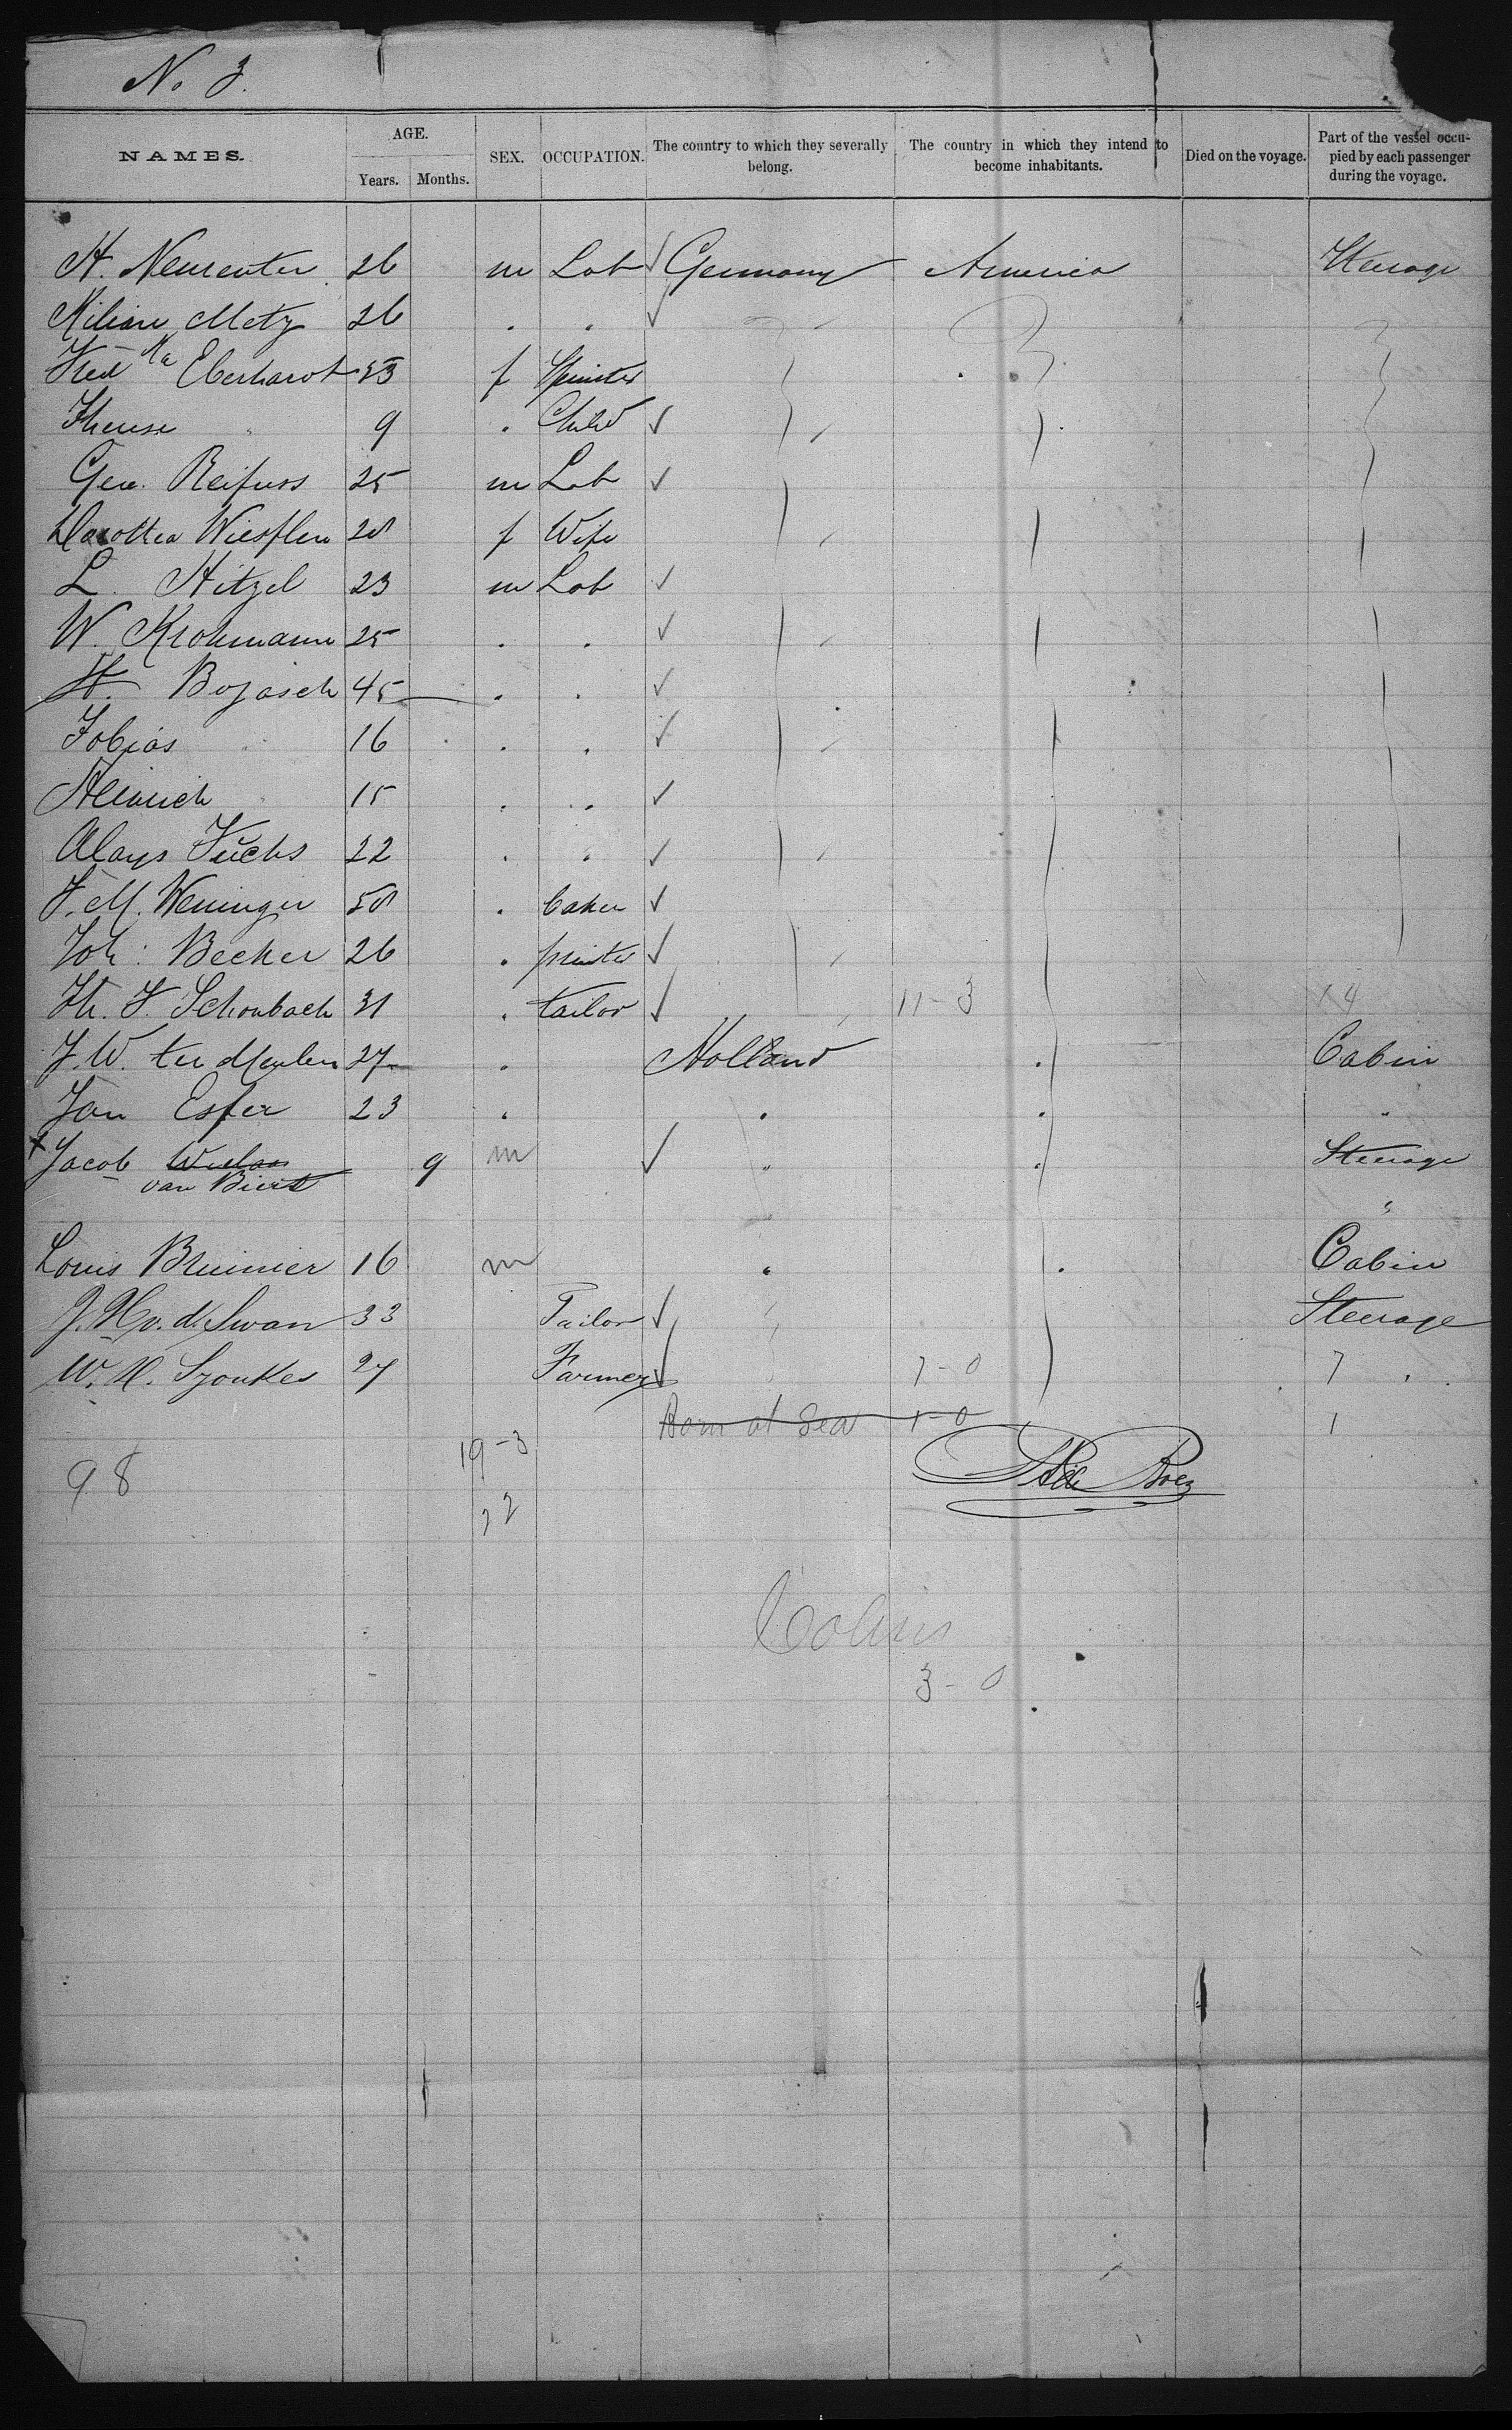 No 3.
NAMES. AGE. Years. Months. SEX. OCCUPATION. The country to which they severally belong. The country in which they intend to become inhabitants. Died on the voyage. Part of the vessel occupied by each passenger during the voyage.
H. Neureuter 26 m Lab Germany America Steerage
Kilian Metz 26 . .
Fred ka Eberhardt 33 f Spinster
Therese " 9 . Child
Geo. Reifuss 25 m Lab
Dorothea 28 f Wife
L. Hitzel 23 m Lab
W. Krohmann 25 . .
H. Bojasch 45 . .
Tobias " 16 . .
Heinrich " 15 . .
Aloys Fuchs 22 . .
F. M. Weninger 58 . baker
Joh: Becker 26 . printer
Th. F. Schonbach 31 . tailor 11-3 14
J. W. ter Meulen 27 . Holland . Cabin
Jan Esfer 23 . . . "
x Jacob 9 m " . Steerage
van Biert "
Louis Bruinier 16 m " . Cabin
J. H. v. d. Swan 33 Tailor " Steerage
W. H. 27 Farmer " 7-0 7 "
Born at Sea 1-0 1
19-3
98
22
Cabin
3-0